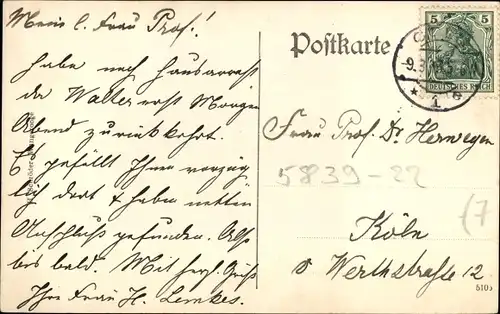 Meine l. Frau Prof.!
habe noch Hausarrest
da Walter erst Morgen
Abend zurückkehrt.
Es gefällt Ihnen vorzüg
lich dort & haben netten
Anschluß gefunden. Also
bis bald. Mit herzl. Gruß
Ihre Frau H. Lemkes.
Postkarte
5
5
DEUTSCHES REICH
-9.3.
* 1
Frau Prof. Dr. Herwegen
5839-22
(7
Köln
Werthstraße 12